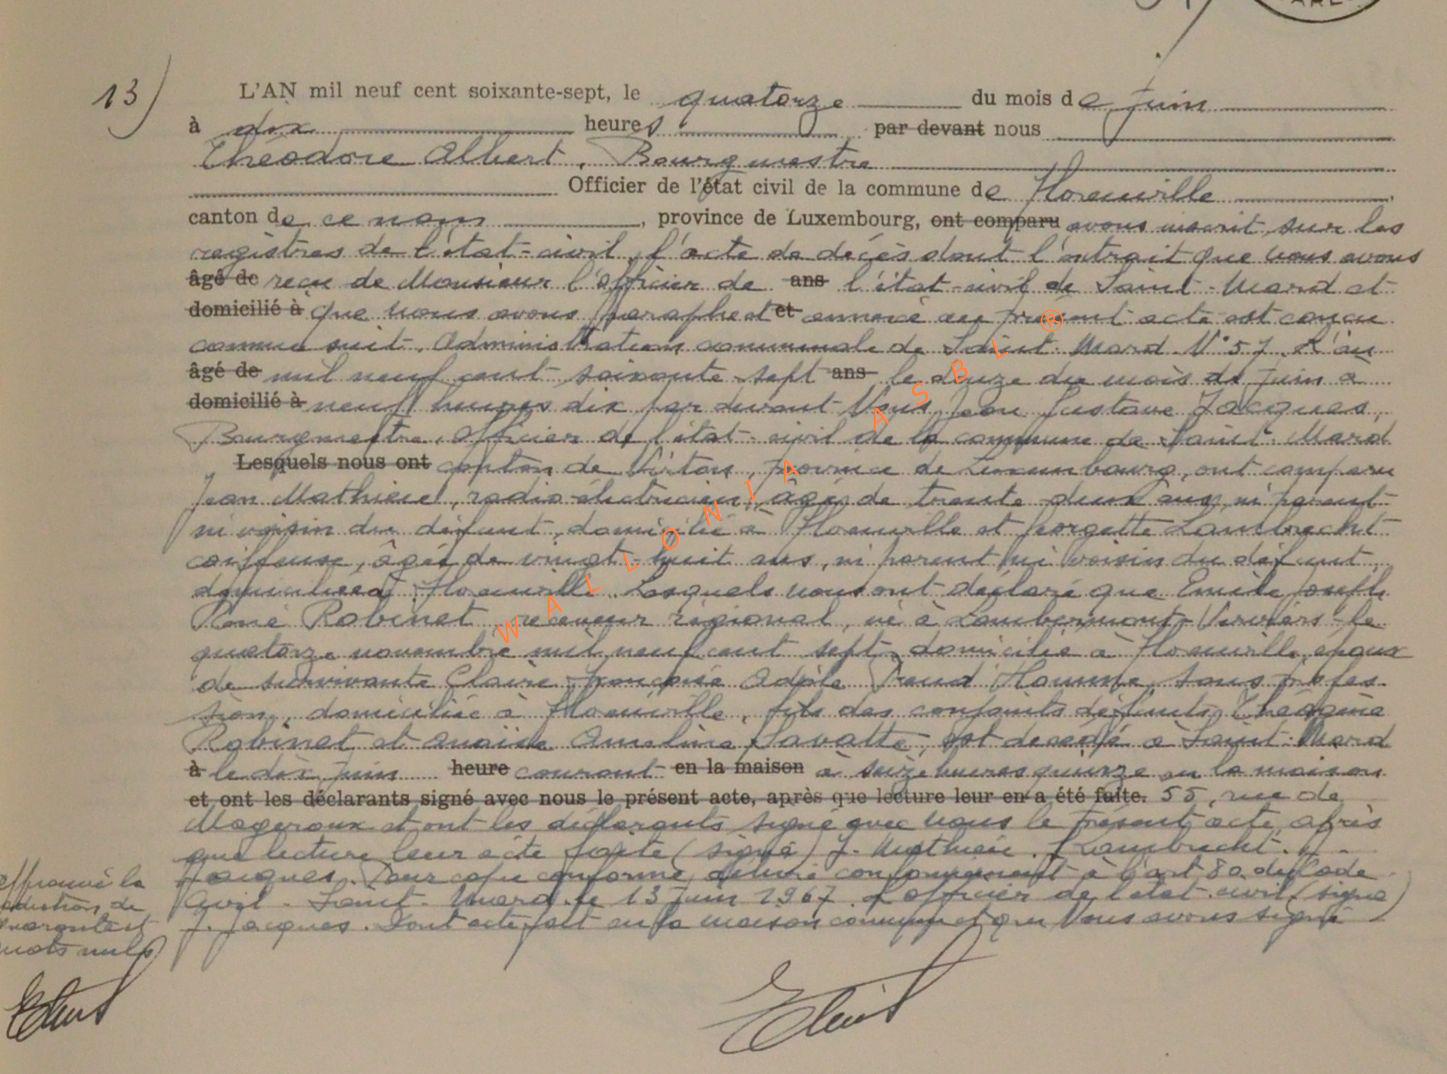 13)
L'AN mil neuf cent soixante-sept, le quatorze du mois de juin
à dix heures par devant nous
Théodore Albert, Bourgmestre
Officier de l'état civil de la commune de Florenville,
canton de ce nom, province de Luxembourg, ont comparu avons inscrit sur les
registres de l'état-civil, l'acte de décès dont l'extrait que nous avons
âgé de reçu de Monsieur l'officier de ans l'état-civil de Saint-Mard et
domicilié à que nous avons paraphé et et annexé au présent acte est conçu
comme suit. Administration communale de Saint-Mard. N° 57. L'an
âgé de mil neuf cent soixante-sept ans le douze du mois de juin à
domicilié à neuf heures dix par devant Nous, Jean Gustave Jacques,
Bourgmestre, officier de l'état-civil de la commune de Saint-Mard
Lesquels nous ont canton de Virton, province de Luxembourg, ont comparu
Jean Mathieu, radio-électricien, âgé de trente deux ans, ni parent
ni voisin du défunt, domicilié à Florenville et Georgette Lambrecht
coiffeuse, âgée de vingt-huit ans, ni parent ni voisin du défunt,
domiciliée à Florenville. Lesquels nous ont déclaré que Emile Joseph
René Robinet, receveur régional, né à Lambermont-Verviers le
quatorze novembre mil neuf cent sept, domicilié à Florenville, époux
de survivante Claire Françoise Adèle Prud'Homme, sans profes-
sion, domiciliée à Florenville, fils des conjoints défunts, Théogène
Robinet et Anaïse Savatte, est décédé à Saint-Mard
à le dix juin heure courant en la maison à seize heures quinze en la maison
et ont les déclarants signé avec nous le présent acte, après que lecture leur en a été faite. 55, rue de
Mageroux et ont les déclarants signé avec nous le présent acte, après
que lecture leur a été faite (signé) J. Mathieu. G. Lambrecht. J.
Jacques. Pour copie conforme délivré conformément à l'art 80 du Code
Civil. Saint-Mard le 13 juin 1967. L'officier de l'état-civil (signé)
J. Jacques. Dont acte fait en la maison communale et que Nous avons signé
Approuvé la
radiation de
quarante et
mots nuls
WALLONIA ASBL ®